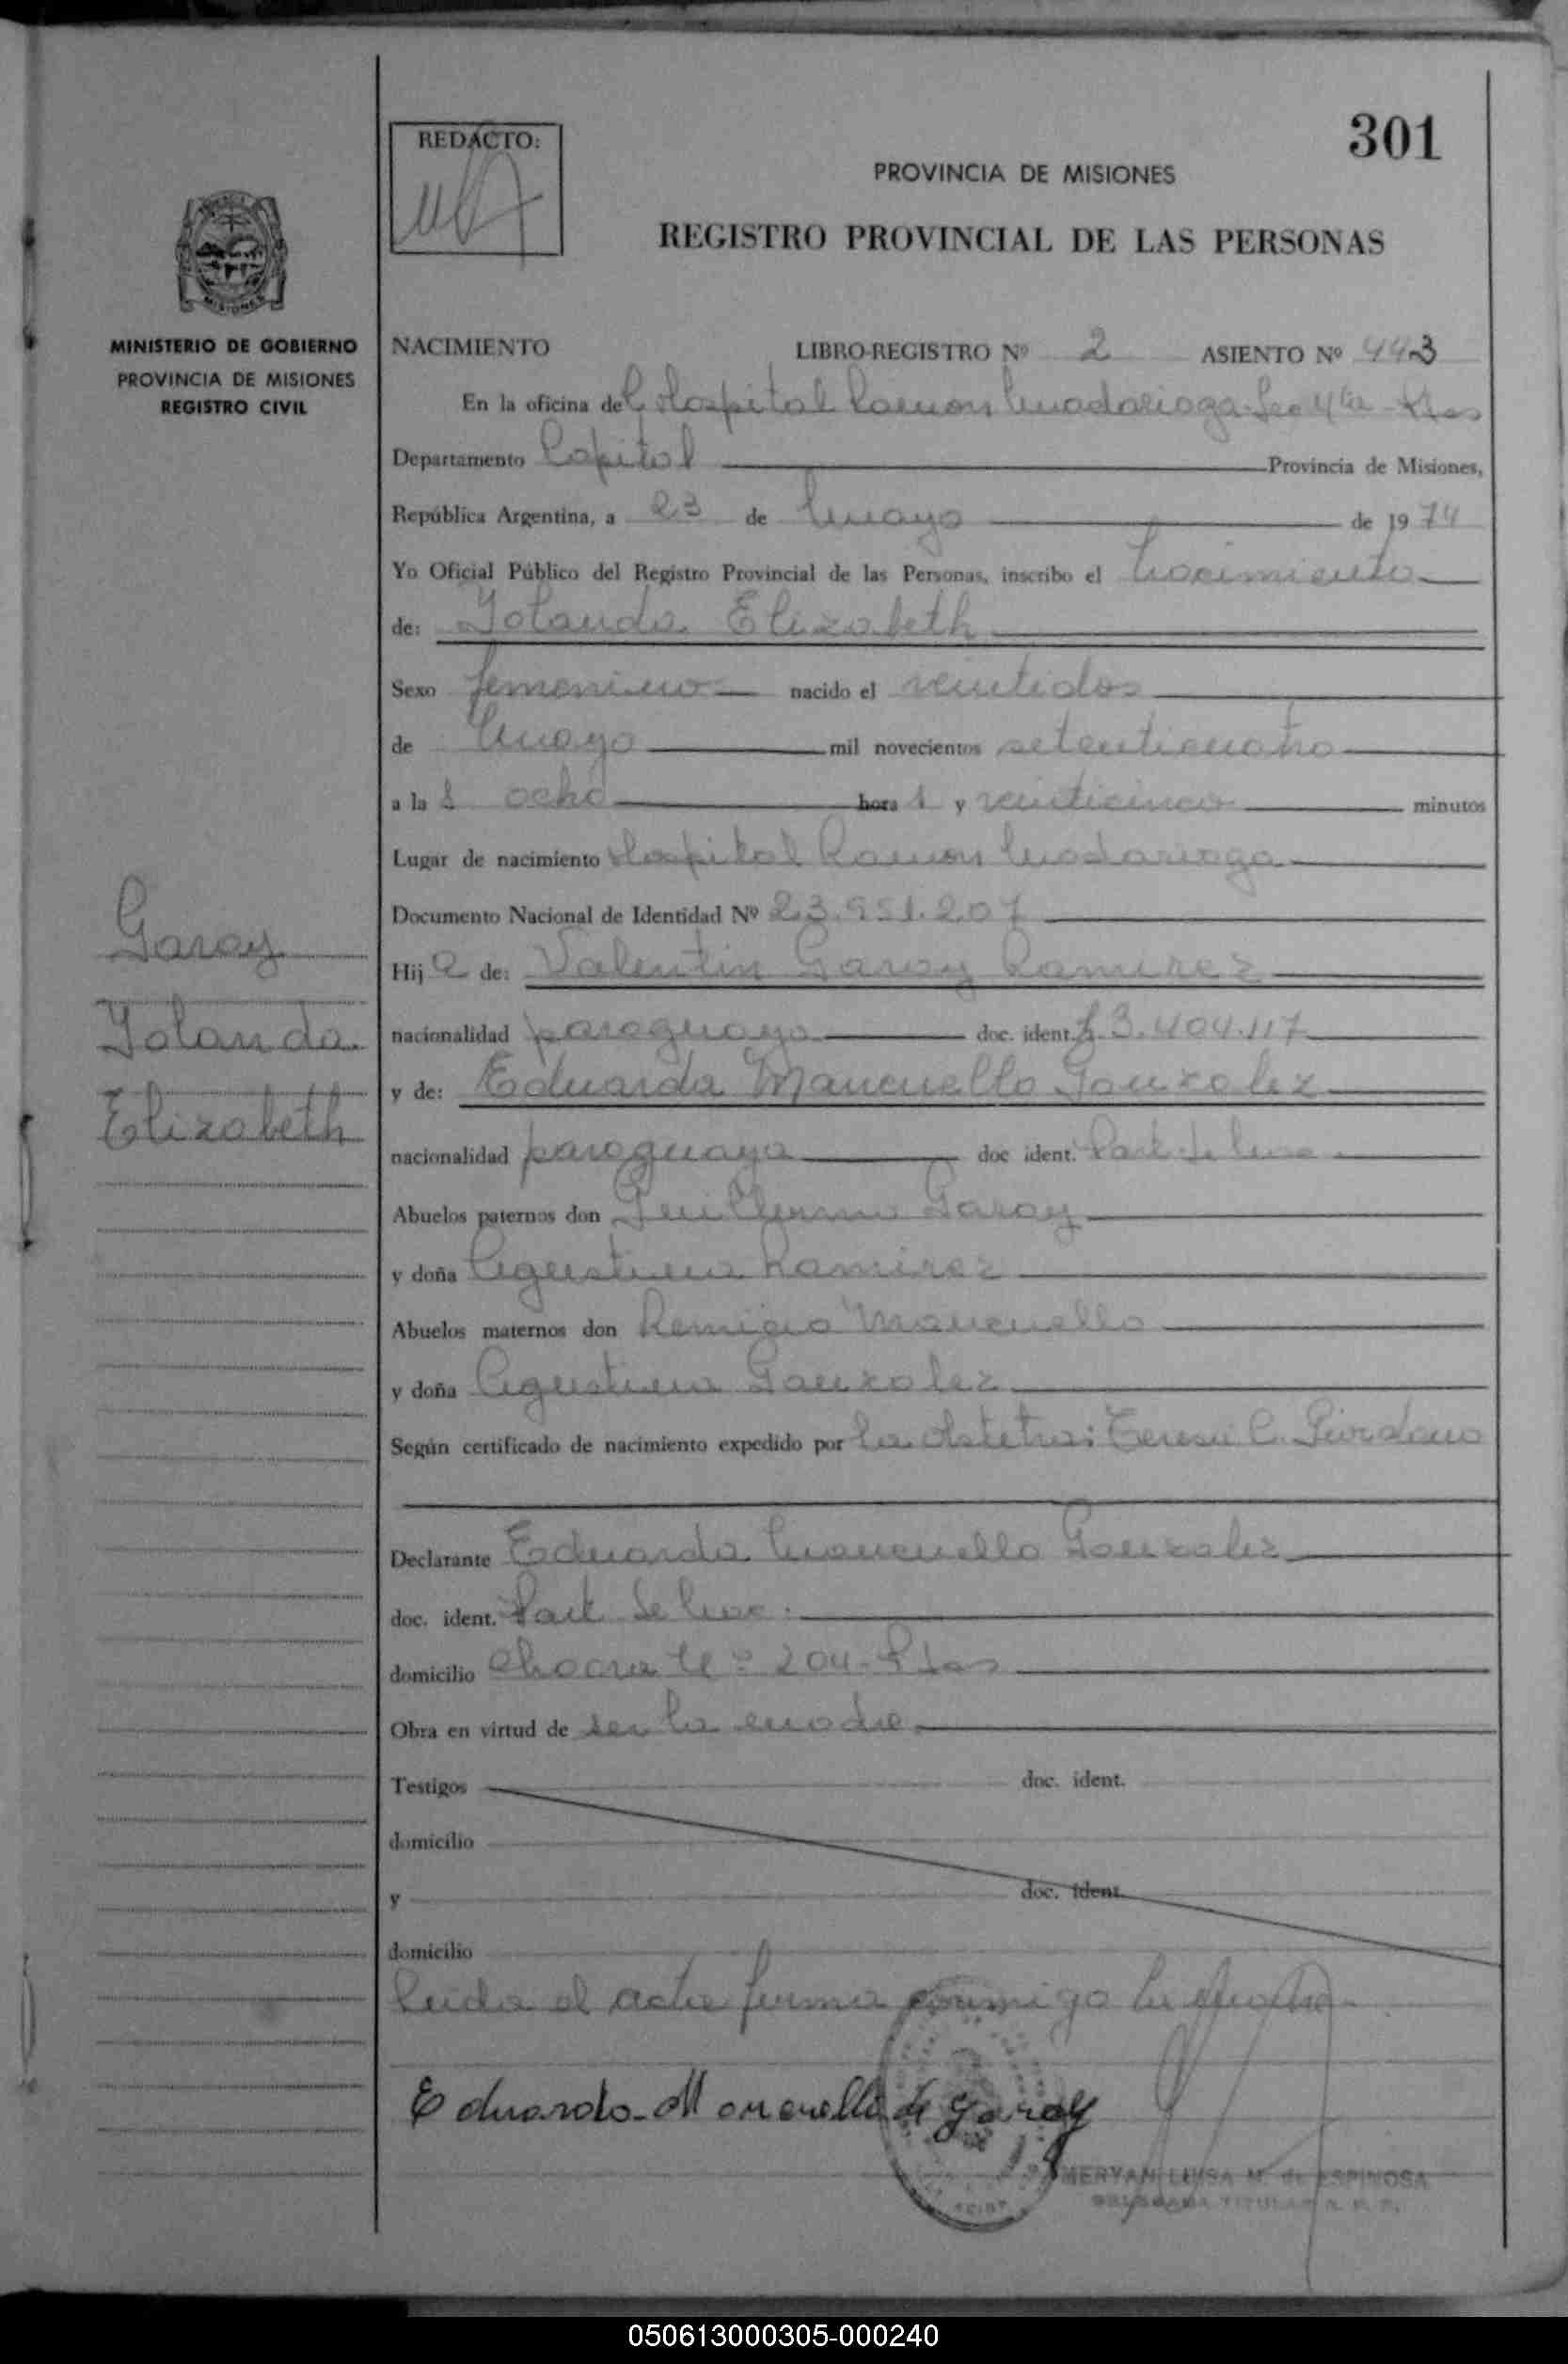 301
REDACTO:
PROVINCIA DE MISIONES
REGISTRO PROVINCIAL DE LAS PERSONAS
MISIONES
MINISTERIO DE GOBIERNO
PROVINCIA DE MISIONES
REGISTRO CIVIL
NACIMIENTO LIBRO-REGISTRO Nº 2 ASIENTO Nº 443
En la oficina del Hospital Ramon Madariaga Sec 4ta
Departamento Capital Provincia de Misiones,
República Argentina, a 23 de Mayo de 1974
Yo Oficial Público del Registro Provincial de las Personas, inscribo el Nacimiento
de: Yolanda Elizabeth
Sexo femenino nacido el veintidos
de Mayo mil novecientos setenticuatro
a las ocho horas y veinticinco minutos
Lugar de nacimiento Hospital Ramon Madariaga
Documento Nacional de Identidad Nº 23.951.207
Garay
Hija de: Valentin Garay Ramirez
Yolanda
nacionalidad paraguayo doc. ident. 3.404.117
Elizabeth
y de: Eduarda Mancuello Gonzalez
nacionalidad paraguaya doc ident.
Abuelos paternos don Guillermo Garay
y doña Agustina Ramirez
Abuelos maternos don Remigio Mancuello
y doña Agustina Gonzalez
Según certificado de nacimiento expedido por la obstetra: Teresa C. Giordano
Declarante Eduarda Mancuello Gonzalez
doc. ident.
domicilio Chacra Nº 204-Pdas
Obra en virtud de ser la madre
Testigos doc. ident.
domicilio
y doc. ident.
domicilio
Leida el acta firma conmigo la madre
Eduarda Mancuello de Garay
MERYAN LUISA M. de ESPINOSA
DELEGADA TITULAR R. P. P.
050613000305-000240